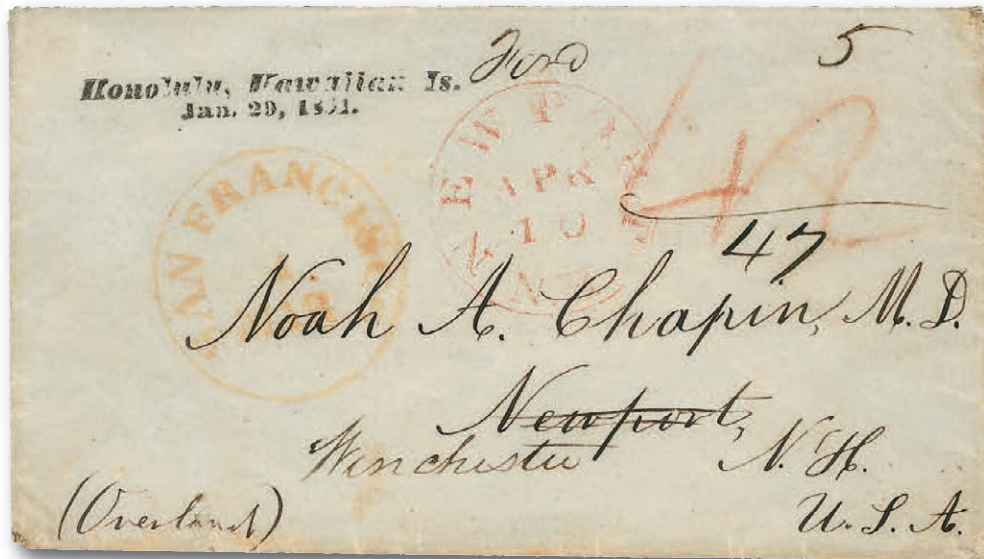 Ford 5
Honolulu, Hawaiian Is.
Jan. 29, 1851.
SAN FRANCISCO
NEWPORT
APR
10
N.H.
42
47
Noah A. Chapin, M.D.
Newport,
Winchester N.H.
U.S.A.
(Overland)